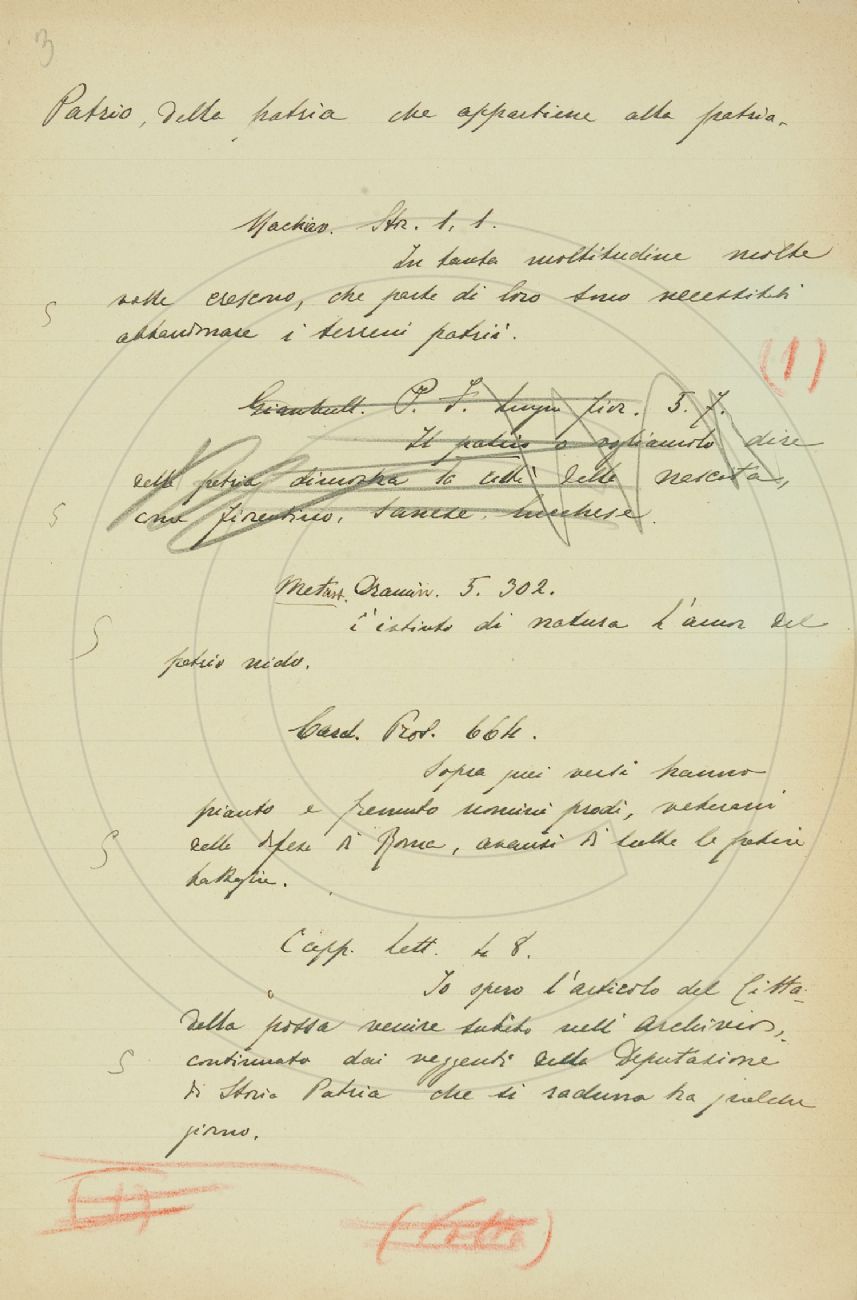 3
Patrio, della patria che appartiene alla patria.
Machiav. Stor. 1, 1.
In tanta moltitudine molte
volte crescono, che parte di loro sono necessitati
abbandonare i terreni patrii.
(1)
Giambull. P. F. Lingu fior. 5. 7.
Il patrio o vogliamolo dire
della patria dimostra la città della nascita,
come fiorentino, sanese, lucchese.
Metast. Dramm. 5. 302.
È istinto di natura L'amor del
patrio nido.
Card. Pros. 664.
Sopra quei versi hanno
pianto e fremuto uomini prodi, veterani
della difesa di Roma, avanzi di tutte le patrie
battaglie.
Capp. Lett. 8.
Io spero l'articolo del Citta-
della possa venire subito nell'Archivio,
continuato dai reggenti della Deputazione
di Storia Patria che si raduna tra qualche
giorno.
(1)